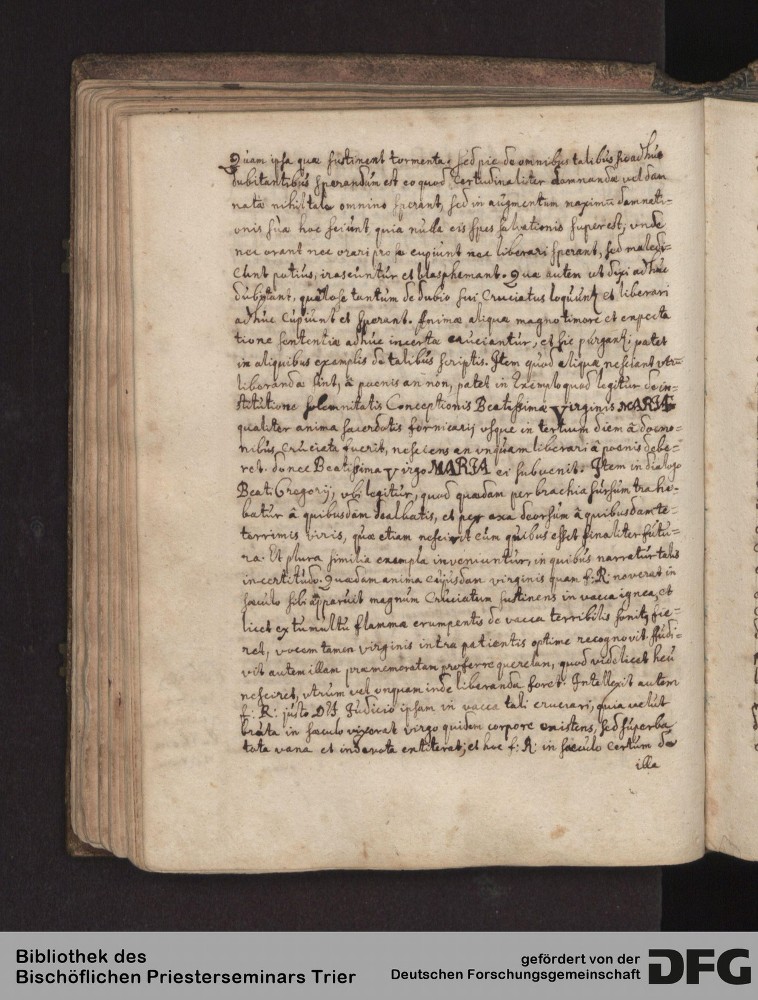 Quam ipsa quæ sustinent tormenta, sed pie de omnibus talibus sic adhuc
dubitantibus sperandum est eo quod certudinaliter damnandæ vel dam
natæ nihil tale omnino sperant, sed in augmentum maximū damnati-
onis suæ hoc sciunt, quia nulla eis spes salvationis superest; unde
nec orant nec orari pro se cupiunt nec liberari sperant, sed maledi-
cunt potius, irascuntur et blasphemant. Quæ autem ut dixi adhuc
dubitant, tantum de dubio sui Cruciatus loquunt et liberari
adhuc cupiunt et sperant. Animæ aliquæ magno timore et expecta
tione sententiæ adhuc incertæ cruciantur, et sic purgant; patet
in aliquibus exemplis de talibus scriptis. Item quod aliquæ nesciant utr-
liberandæ sint, â poenis an non, patet in Exemplo quod legitur de in-
stitutione solemnitatis Conceptionis Beatissimæ Virginis MARIÆ
qualiter anima sacerdotis fornicarij usque in tertium diem â dæmo-
nibus cruciata fuerit, nesciens an unquam liberari â poenis debe-
ret. donec Beatissima Virgo MARIA ei subvenit. Item in dialogo
Beati Gregorij, ubi legitur, quod quædam per brachia sursum trahe-
batur â quibusdam dealbatis, et per axa deorsum â quibusdam te-
terrimis viris, quæ etiam nescivit cum quibus esset finaliter futu-
ra. Et plura similia exempla inveniuntur, in quibus narratur talis
incertitudo. Quædam anima cujusdam virginis quam f: R: noverat in
sæculo sibi apparuit magnum Cruciatum sustinens in vacca ignea, et
licet ex tumultu flammæ erumpentis de vacca terribilis sonitus fie-
ret, vocem tamen virginis intra patientis optime recognovit. Audi-
vit autem illam præmemoratam proferre querelam, quod videlicet heu
nesciret, utrum vel unquam inde liberanda foret. Intellexit autem
f: R: justo Dei Judicio ipsam in vacca tali cruciari, quia velut
bruta in sæculo vixerat virgo quidem corpore existens, sed superba
tota vana et indevota extiterat; et hoc f: R: in sæculo certum de
illa
Bibliothek des
Bischöflichen Priesterseminars Trier
gefördert von der
Deutschen Forschungsgemeinschaft
DFG